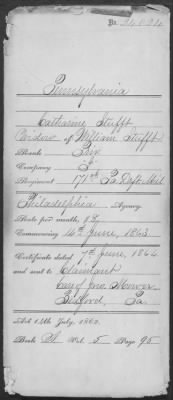 No. 24824
Pennsylvania
Catharine Stufft
Widow of William Stufft
Rank Priv.
Company
Regiment 71st Pa. Drft. Mil.
Philadelphia Agency
Rate per month, $8
Commencing 16th June, 1863
Certificate dated 7th June, 1864
and sent to Claimant
Care of Jno. Mower
Bedford, Pa.
Act 14th July, 1862.
Book Vol. 5 Page 95